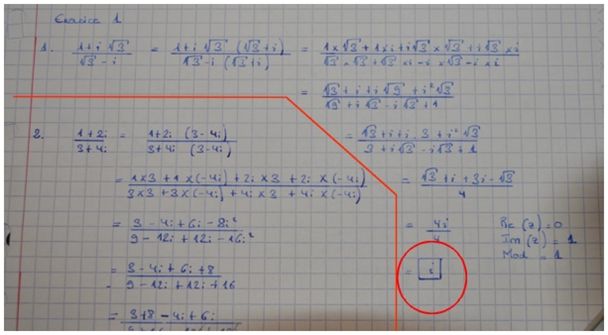 Exercice 1
1. (1+i√3)/(√3-i) = (1+i√3 (√3+i))/(√3-i (√3+i)) = (1×√3+1×i+i√3×√3+i√3×i)/(√3×√3+√3×i-i×√3-i×i)
= (√3+i+i√9+i²√3)/(√9+i√3-i√3+1)
= (√3+i+i×3+i²√3)/(3+i√3-i√3+1)
= (√3+i+3i-√3)/4
= 4i/4
Re(z)=0
Im(z)=1
Mod=1
= i
2. (1+2i)/(3+4i) = (1+2i (3-4i))/(3+4i (3-4i))
= (1×3+1×(-4i)+2i×3+2i×(-4i))/(3×3+3×(-4i)+4i×3+4i×(-4i))
= (3-4i+6i-8i²)/(9-12i+12i-16i²)
= (3-4i+6i+8)/(9-12i+12i+16)
= 3+8-4i+6i